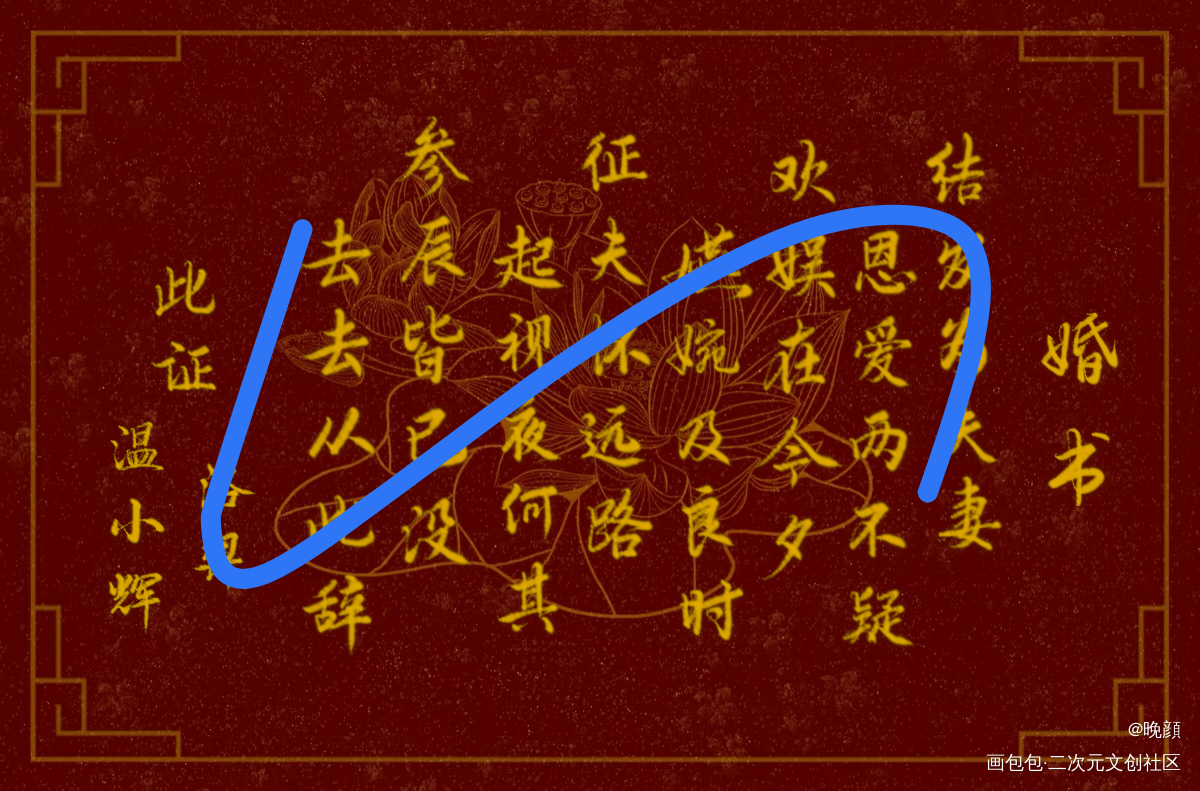 婚书
结发为夫妻
恩爱两不疑
欢娱在今夕
嬿婉及良时
征夫怀远路
起视夜何其
参辰皆已没
去去从此辞
此证
温小辉
@晚顔
画包包·二次元文创社区